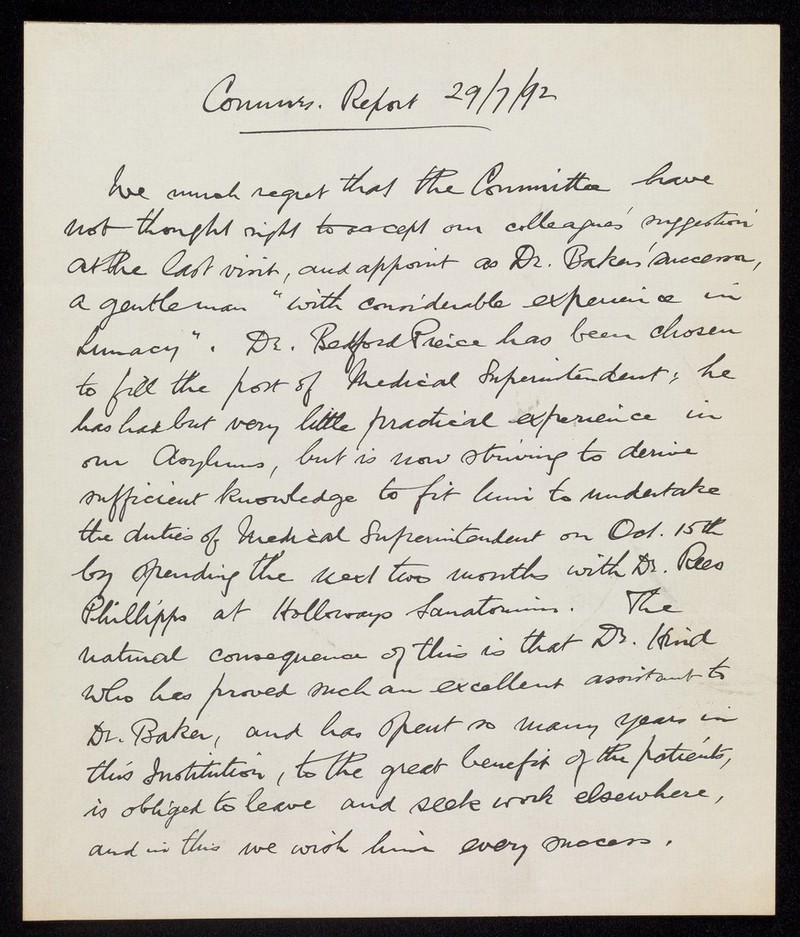 Commrs. Report 29/7/92
We much regret that the Committee have
not thought right to accept our colleagues' suggestion
at the last visit, and appoint as Dr. Baker's successor,
a gentleman "with considerable experience in
Lunacy". Dr. Bedford Pierce has been chosen
to fill the post of Medical Superintendent; he
has had but very little practical experience in
our Asylums, but is now striving to derive
sufficient knowledge to fit him to undertake
the duties of Medical Superintendent on Oct. 15th
by spending the next two months with Dr. Rees
Phillipps at Holloways Sanatorium. The
natural consequence of this is that Dr. Hind
who has proved such an excellent assistant to
Dr. Baker, and has spent so many years in
this Institution, to the great benefit of the patients,
is obliged to leave and seek work elsewhere,
and in this we wish him every success.